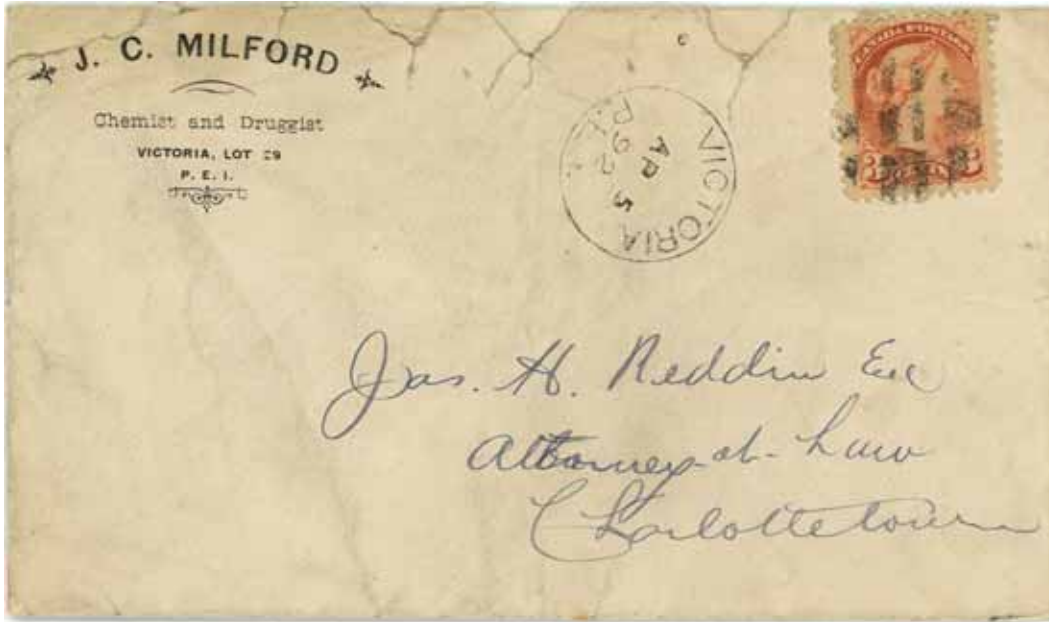 J. C. MILFORD
Chemist and Druggist
VICTORIA, LOT 29
P. E. I.
VICTORIA
P.E.I.
AP 5
92
CANADA POSTAGE
3 3
Jas. H. Reddin Esq
Attorney-at-Law
Charlottetown